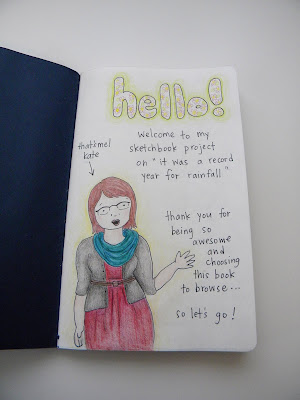 hello!
welcome to my
sketchbook project
on "it was a record
year for rainfall"
that's me!
kate
thank you for
being so
awesome
and
choosing
this book
to browse...
so let's go!